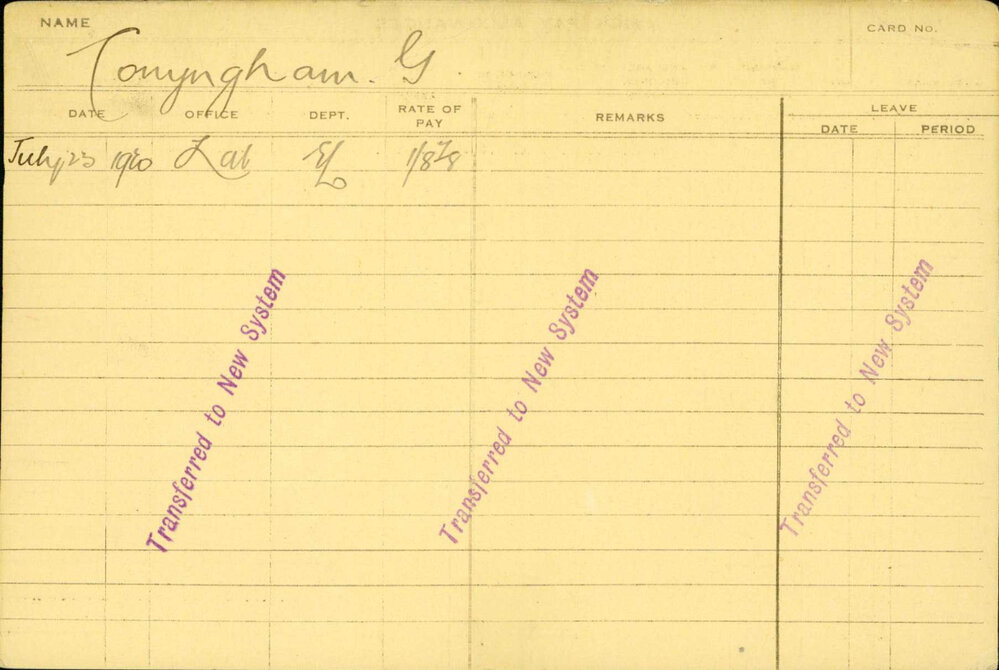 NAME
CARD No.
Conyngham. G
DATE OFFICE DEPT. RATE OF PAY REMARKS LEAVE
DATE PERIOD
July 23 1920 Lab 1/8 7/8
Transferred to New System
Transferred to New System
Transferred to New System